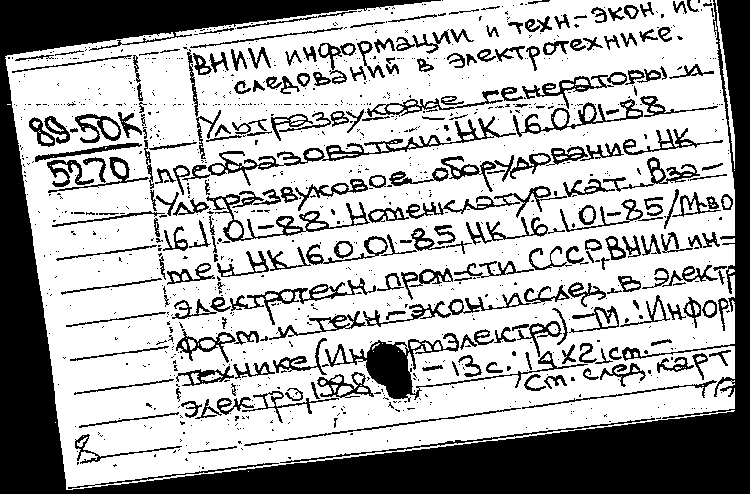 ВНИИ информации и техн.-экон. ис-
следований в электротехнике.
89-50К
5270
Ультразвуковые генераторы и
преобразователи: НК 16.0.01-88.
Ультразвуковое оборудование: НК
16.1.01-88: Номенклатур. кат.: Вза-
мен НК 16.0.01-85, НК 16.1.01-85/М-во
электротехн. пром-сти СССР, ВНИИ ин-
форм. и техн.-экон. исслед. в электро
технике (Информэлектро).-М.: Информ
электро, 1988. -13с.; 14х21см.-
См. след. карт
8